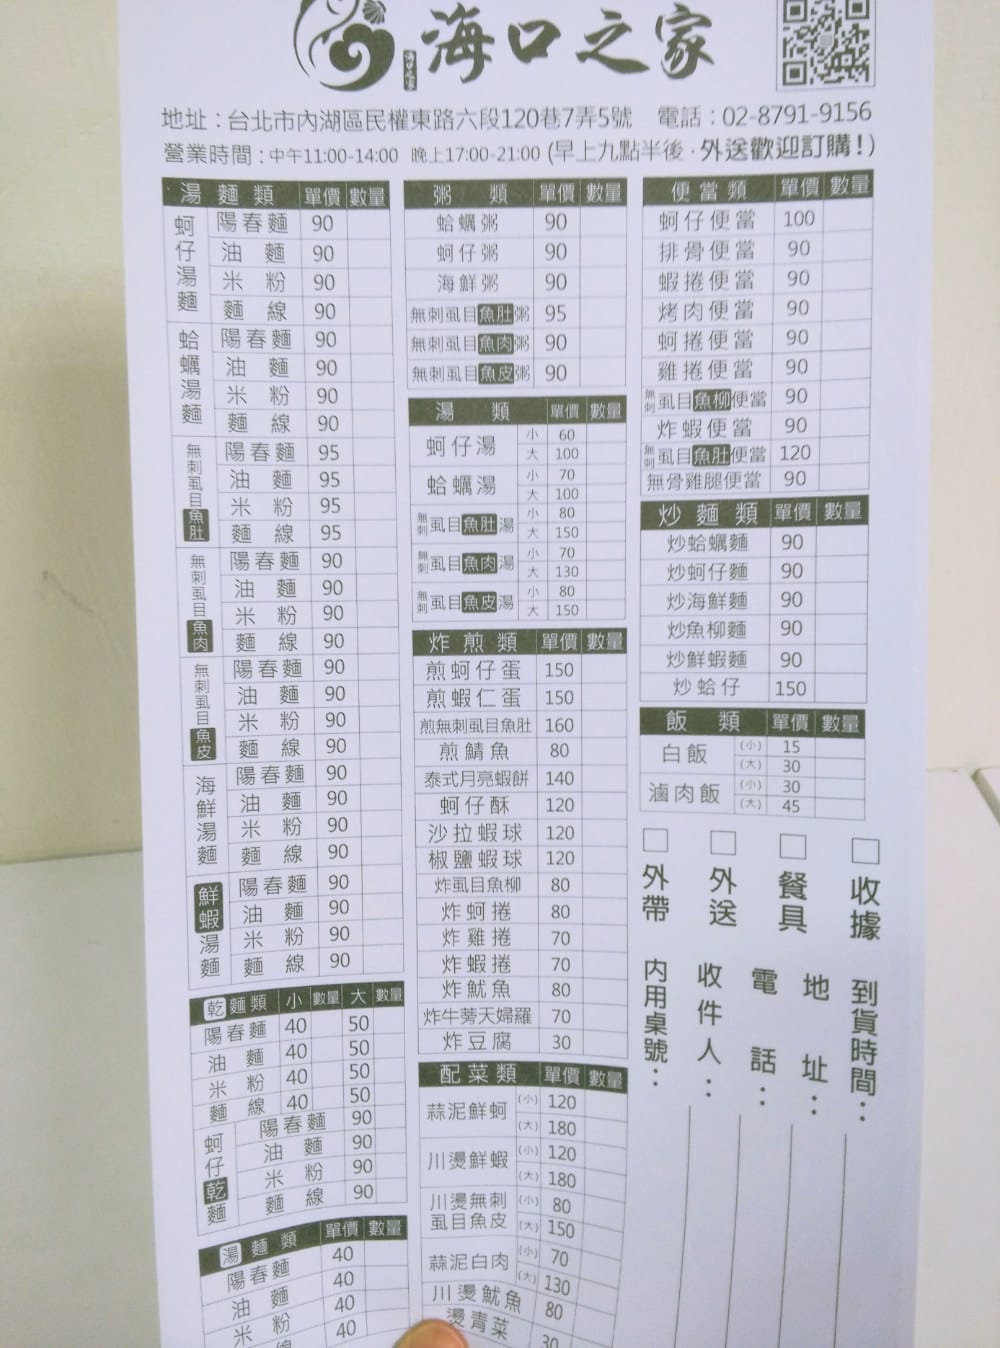 海口之家
海口之家
地址：台北市內湖區民權東路六段120巷7弄5號 電話：02-8791-9156
營業時間：中午11:00-14:00 晚上17:00-21:00 (早上九點半後，外送歡迎訂購！)
湯麵類 單價 數量
蚵仔湯麵
陽春麵 90
油麵 90
米粉 90
麵線 90
蛤蠣湯麵
陽春麵 90
油麵 90
米粉 90
麵線 90
無刺虱目魚肚
陽春麵 95
油麵 95
米粉 95
麵線 95
無刺虱目魚肉
陽春麵 90
油麵 90
米粉 90
麵線 90
無刺虱目魚皮
陽春麵 90
油麵 90
米粉 90
麵線 90
海鮮湯麵
陽春麵 90
油麵 90
米粉 90
麵線 90
鮮蝦湯麵
陽春麵 90
油麵 90
米粉 90
麵線 90
乾麵類 小 數量 大 數量
陽春麵 40 50
油麵 40 50
米粉 40 50
麵線 40 50
蚵仔乾麵
陽春麵 90
油麵 90
米粉 90
麵線 90
湯麵類 單價 數量
陽春麵 40
油麵 40
米粉 40
線 40
粥類 單價 數量
蛤蠣粥 90
蚵仔粥 90
海鮮粥 90
無刺虱目魚肚粥 95
無刺虱目魚肉粥 90
無刺虱目魚皮粥 90
湯類 單價 數量
蚵仔湯 小 60
大 100
蛤蠣湯 小 70
大 100
無刺虱目魚肚湯 小 80
大 150
無刺虱目魚肉湯 小 70
大 130
無刺虱目魚皮湯 小 80
大 150
炸煎類 單價 數量
煎蚵仔蛋 150
煎蝦仁蛋 150
煎無刺虱目魚肚 160
煎鯖魚 80
泰式月亮蝦餅 140
蚵仔酥 120
沙拉蝦球 120
椒鹽蝦球 120
炸虱目魚柳 80
炸蚵捲 80
炸雞捲 70
炸蝦捲 70
炸魷魚 80
炸牛蒡天婦羅 70
炸豆腐 30
配菜類 單價 數量
蒜泥鮮蚵 (小) 120
(大) 180
川燙鮮蝦 (小) 120
(大) 180
川燙無刺虱目魚皮 (小) 80
(大) 150
蒜泥白肉 (小) 70
(大) 130
川燙魷魚 80
燙青菜 30
便當類 單價 數量
蚵仔便當 100
排骨便當 90
蝦捲便當 90
烤肉便當 90
蚵捲便當 90
雞捲便當 90
無刺虱目魚柳便當 90
炸蝦便當 90
無刺虱目魚肚便當 120
無骨雞腿便當 90
炒麵類 單價 數量
炒蛤蠣麵 90
炒蚵仔麵 90
炒海鮮麵 90
炒魚柳麵 90
炒鮮蝦麵 90
炒蛤仔 150
飯類 單價 數量
白飯 (小) 15
(大) 30
滷肉飯 (小) 30
(大) 45
□收據 到貨時間：
□餐具 地址：
電話：
□外送 收件人：
□外帶 內用桌號：